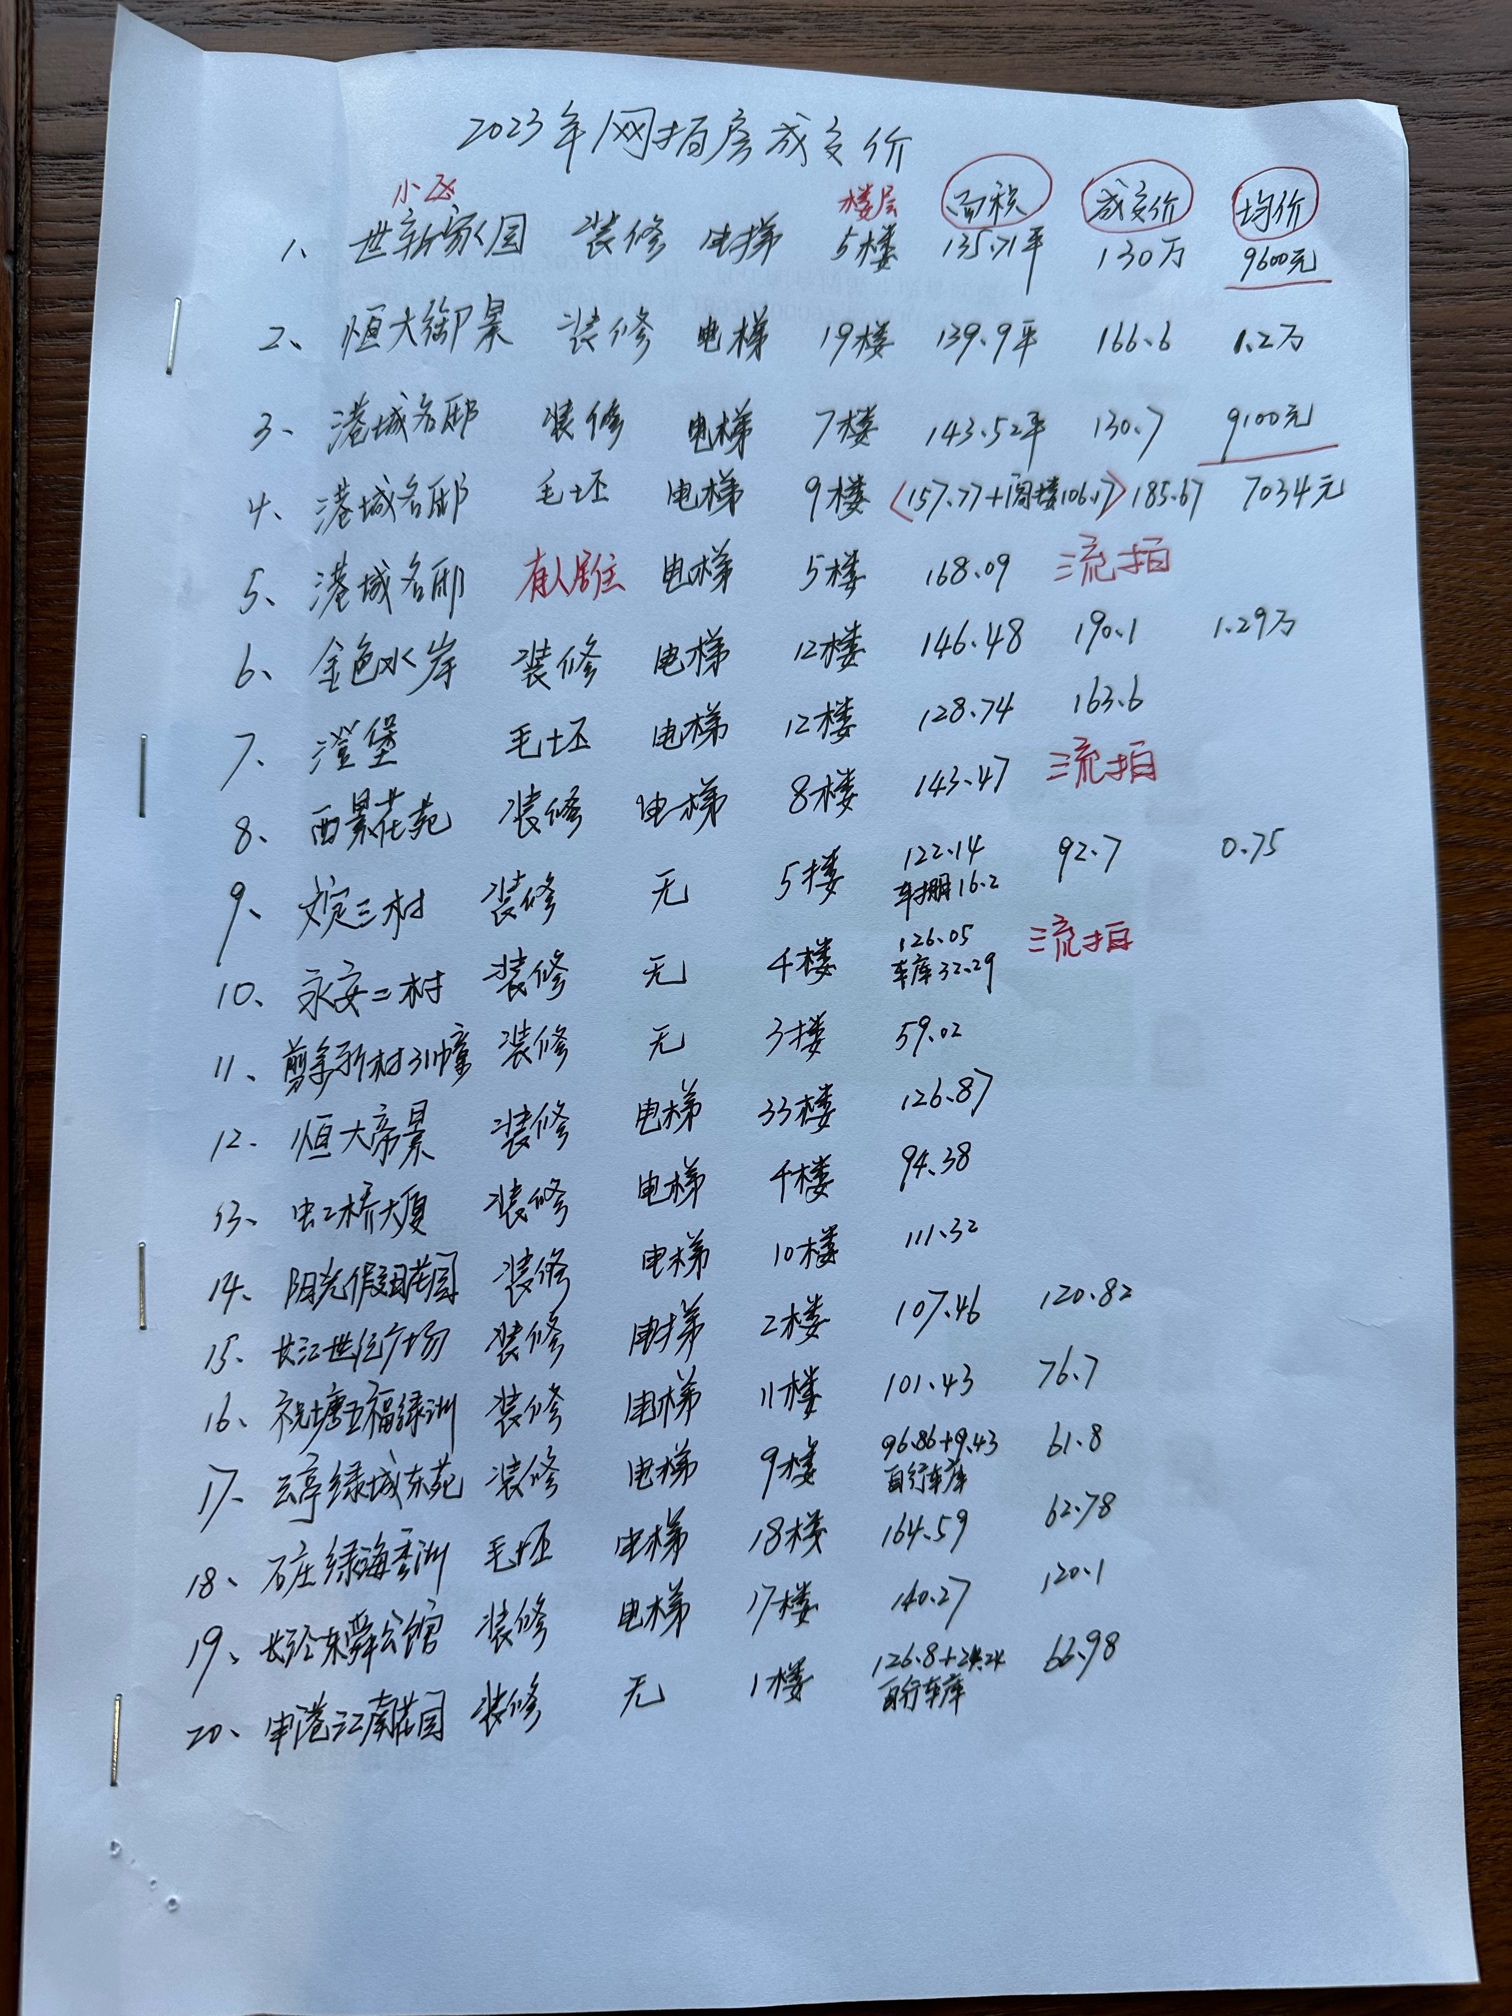 2023年网拍房成交价
小区 楼层 面积 成交价 均价
1、世新家园 装修 电梯 5楼 135.71平 130万 9600元
2、恒大御景 装修 电梯 19楼 139.9平 166.6 1.2万
3、港城名邸 装修 电梯 7楼 143.52平 130.7 9100元
4、港城名邸 毛坯 电梯 9楼 〈157.77+阁楼106.17〉185.67 7034元
5、港城名邸 有人居住 电梯 5楼 168.09 流拍
6、金色水岸 装修 电梯 12楼 146.48 190.1 1.29万
7、澄堡 毛坯 电梯 12楼 128.74 163.6
8、西景花苑 装修 电梯 8楼 143.47 流拍
9、文定三村 装修 无 5楼 122.14 92.7 0.75
车棚16.2
10、永安二村 装修 无 4楼 126.05 流拍
车库32.29
11、剪金新村31幢 装修 无 3楼 59.02
12、恒大帝景 装修 电梯 33楼 126.87
13、虹桥大厦 装修 电梯 4楼 94.38
14、阳光假日花园 装修 电梯 10楼 111.32
15、长江世纪广场 装修 电梯 2楼 107.46 120.82
16、祝塘五福绿洲 装修 电梯 11楼 101.43 76.7
17、云亭绿城东苑 装修 电梯 9楼 96.86+9.43 61.8
自行车库
18、石庄绿海香洲 毛坯 电梯 18楼 164.59 62.78
19、长泾东舜公馆 装修 电梯 17楼 140.27 120.1
20、申港江南花园 装修 无 1楼 126.8+24.24 66.98
自行车库